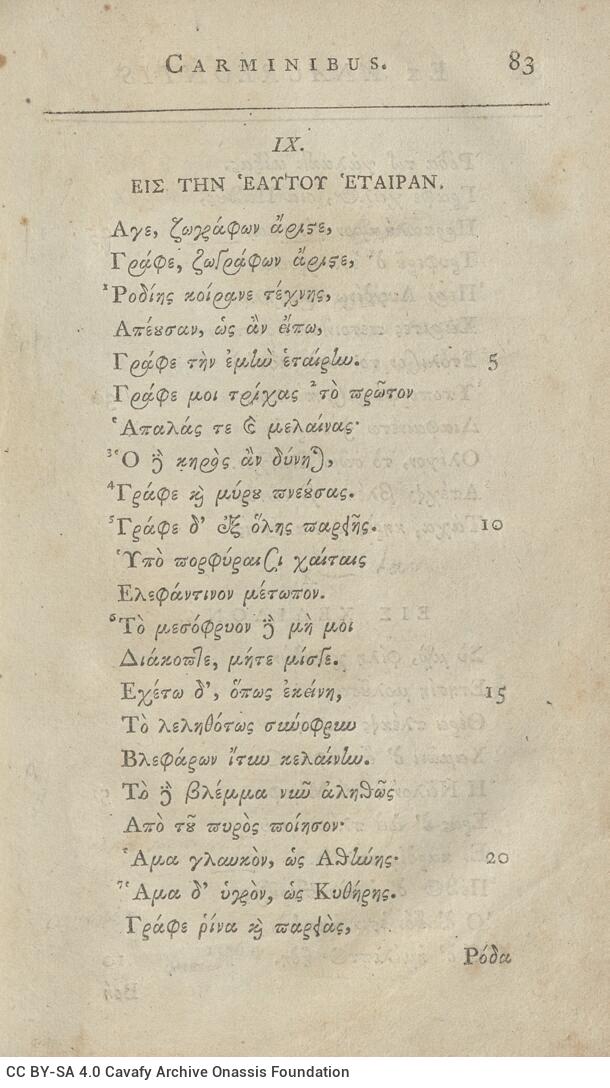 CARMINIBUS. 83
IX.
ΕΙΣ ΤΗΝ ἙΑΥΤΟΥ ἙΤΑΙΡΑΝ.
Αγε, ζωγράφων ἄριϛε,
Γράφε, ζωγράφων ἄριϛε,
¹Ῥοδίης κοίρανε τέχνης,
Απέουσαν, ὡς ἂν εἴπω,
Γράφε τὴν ἐμὴν ἑταίρην. 5
Γράφε μοι τρίχας ²τὸ πρῶτον
Ἁπαλάς τε καὶ μελαίνας·
³Ὁ δὲ κηρὸς ἂν δύνηται,
⁴Γράφε καὶ μύρου πνεούσας.
⁵Γράφε δ' ἐξ ὅλης παρειῆς. 10
Ὑπὸ πορφύραισι χαίταις
Ελεφάντινον μέτωπον.
⁶Τὸ μεσόφρυον δὲ μὴ μοι
Διάκοπτε, μήτε μίσγε.
Εχέτω δ', ὅπως ἐκείνη, 15
Τὸ λεληθότως σύνοφρυν
Βλεφάρων ἴτυν κελαίνην.
Τὸ δὲ βλέμμα νῦν ἀληθῶς
Απὸ τοῦ πυρὸς ποίησον·
Ἅμα γλαυκὸν, ὡς Αθήνης· 20
⁷Ἅμα δ' ὑγρὸν, ὡς Κυθήρης.
Γράφε ῥίνα καὶ παρειὰς,
Ρόδα
CC BY-SA 4.0 Cavafy Archive Onassis Foundation